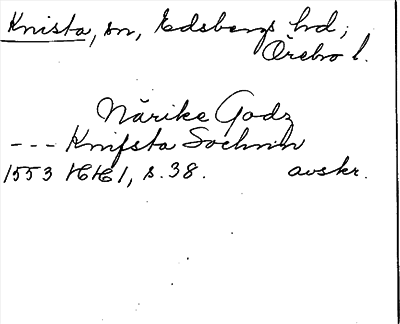 Knista, sn, Edsbergs hd;
Örebro l.
Närike Godz
--- Knifsta Sochnn
1553 HH 1, s. 38. avskr.